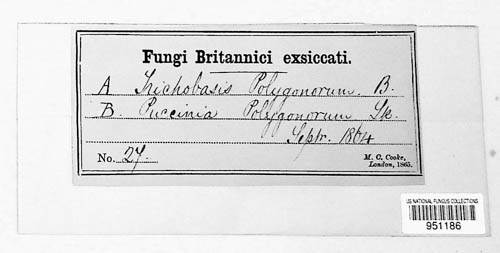 Fungi Britannici exsiccati.
A Trichobasis Polygonorum. B.
B. Puccinia Polygonorum Lk.
Septr. 1864
No. 27.
M. C. Cooke,
London, 1865.
US NATIONAL FUNGUS COLLECTIONS
951186